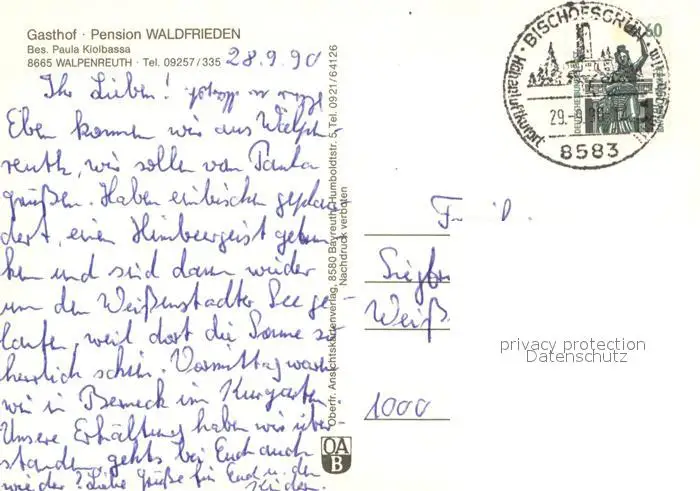 Gasthof · Pension WALDFRIEDEN
Bes. Paula Kiolbassa
8665 WALPENREUTH · Tel. 09257/335
28.9.90
Ihr Lieben!
Eben kommen wir aus Walpen-
reuth, wir sollen von Paula
grüßen. Haben einbischen geplau-
dert, einen Himbeergeist getrun-
ken und sind dann wieder
um den Weißenstadter See ge-
laufen, weil dort die Sonne so
herrlich schien. Vormittag waren
wir in Berneck im Kurgarten.
Unsere Erkältung haben wir über-
standen, gehts bei Euch auch
wieder? Liebe Grüße für Euch u. den
Kindern.
Oberfr. Ansichtskartenverlag, 8580 Bayreuth, Humboldtstr. 5, Tel. 0921/64126
Nachdruck verboten
OA
B
BISCHOFSGRÜN
60
29.-9.90
Höhenluftkurort
8583
F
Siegfr
Weiß
1000
privacy protection
Datenschutz